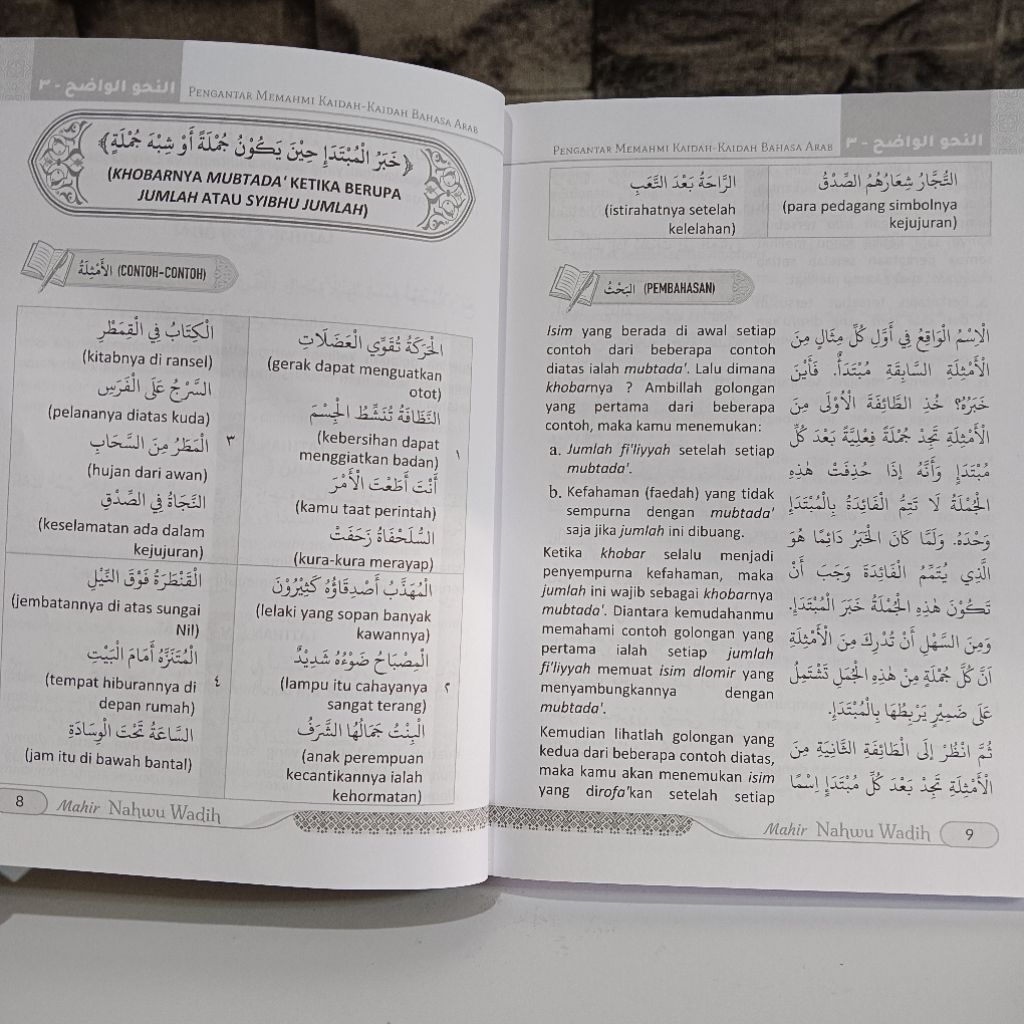 النحو الواضح - ٣
PENGANTAR MEMAHMI KAIDAH-KAIDAH BAHASA ARAB
﴿خَبَرُ الْمُبْتَدَإِ حِيْنَ يَكُوْنُ جُمْلَةً أَوْ شِبْهَ جُمْلَةٍ﴾
(KHOBARNYA MUBTADA' KETIKA BERUPA
JUMLAH ATAU SYIBHU JUMLAH)
الأَمْثِلَةُ (CONTOH-CONTOH)
الْحَرَكَةُ تُقَوِّي الْعَضَلَاتِ
(gerak dapat menguatkan
otot)
النَّظَافَةُ تُنَشِّطُ الْجِسْمَ
(kebersihan dapat
menggiatkan badan)
١
أَنْتَ أَطَعْتَ الْأَمْرَ
(kamu taat perintah)
السُّلَحْفَاةُ زَحَفَتْ
(kura-kura merayap)
الْكِتَابُ فِي الْقِمَطْرِ
(kitabnya di ransel)
السَّرْجُ عَلَى الْفَرَسِ
(pelananya diatas kuda)
٣
الْمَطَرُ مِنَ السَّحَابِ
(hujan dari awan)
النَّجَاةُ فِي الصِّدْقِ
(keselamatan ada dalam
kejujuran)
الْمُهَذَّبُ أَصْدِقَاؤُهُ كَثِيْرُوْنَ
(lelaki yang sopan banyak
kawannya)
الْمِصْبَاحُ ضَوْءُهُ شَدِيْدٌ
(lampu itu cahayanya
sangat terang)
٢
الْبِنْتُ جَمَالُهَا الشَّرَفُ
(anak perempuan
kecantikannya ialah
kehormatan)
الْقَنْطَرَةُ فَوْقَ النِّيْلِ
(jembatannya di atas sungai
Nil)
الْمُتَنَزَّهُ أَمَامَ الْبَيْتِ
(tempat hiburannya di
depan rumah)
٤
السَّاعَةُ تَحْتَ الْوِسَادَةِ
(jam itu di bawah bantal)
8
Mahir Nahwu Wadih
PENGANTAR MEMAHMI KAIDAH-KAIDAH BAHASA ARAB
النحو الواضح - ٣
التُّجَّارُ شِعَارُهُمُ الصِّدْقُ
(para pedagang simbolnya
kejujuran)
الرَّاحَةُ بَعْدَ التَّعَبِ
(istirahatnya setelah
kelelahan)
البَحْثُ (PEMBAHASAN)
الْاِسْمُ الْوَاقِعُ فِي أَوَّلِ كُلِّ مِثَالٍ مِنَ
الْأَمْثِلَةِ السَّابِقَةِ مُبْتَدَأٌ. فَأَيْنَ
خَبَرُهُ؟ خُذِ الطَّائِفَةَ الْأُوْلَى مِنَ
الْأَمْثِلَةِ تَجِدْ جُمْلَةً فِعْلِيَّةً بَعْدَ كُلِّ
مُبْتَدَإٍ وَأَنَّهُ إِذَا حُذِفَتْ هٰذِهِ
الْجُمْلَةُ لَا تَتِمُّ الْفَائِدَةُ بِالْمُبْتَدَإِ
وَحْدَهُ. وَلَمَّا كَانَ الْخَبَرُ دَائِمًا هُوَ
الَّذِي يُتَمِّمُ الْفَائِدَةَ وَجَبَ أَنْ
تَكُوْنَ هٰذِهِ الْجُمْلَةُ خَبَرَ الْمُبْتَدَإِ.
وَمِنَ السَّهْلِ أَنْ تُدْرِكَ مِنَ الْأَمْثِلَةِ
أَنَّ كُلَّ جُمْلَةٍ مِنْ هٰذِهِ الْجُمَلِ تَشْتَمِلُ
عَلَى ضَمِيْرٍ يَرْبِطُهَا بِالْمُبْتَدَإِ.
ثُمَّ انْظُرْ إِلَى الطَّائِفَةِ الثَّانِيَةِ مِنَ
الْأَمْثِلَةِ تَجِدْ بَعْدَ كُلِّ مُبْتَدَإٍ اِسْمًا
Isim yang berada di awal setiap
contoh dari beberapa contoh
diatas ialah mubtada'. Lalu dimana
khobarnya ? Ambillah golongan
yang pertama dari beberapa
contoh, maka kamu menemukan:
a. Jumlah fi'liyyah setelah setiap
mubtada'.
b. Kefahaman (faedah) yang tidak
sempurna dengan mubtada'
saja jika jumlah ini dibuang.
Ketika khobar selalu menjadi
penyempurna kefahaman, maka
jumlah ini wajib sebagai khobarnya
mubtada'. Diantara kemudahanmu
memahami contoh golongan yang
pertama ialah setiap jumlah
fi'liyyah memuat isim dlomir yang
menyambungkannya dengan
mubtada'.
Kemudian lihatlah golongan yang
kedua dari beberapa contoh diatas,
maka kamu akan menemukan isim
yang dirofa'kan setelah setiap
Mahir Nahwu Wadih
9